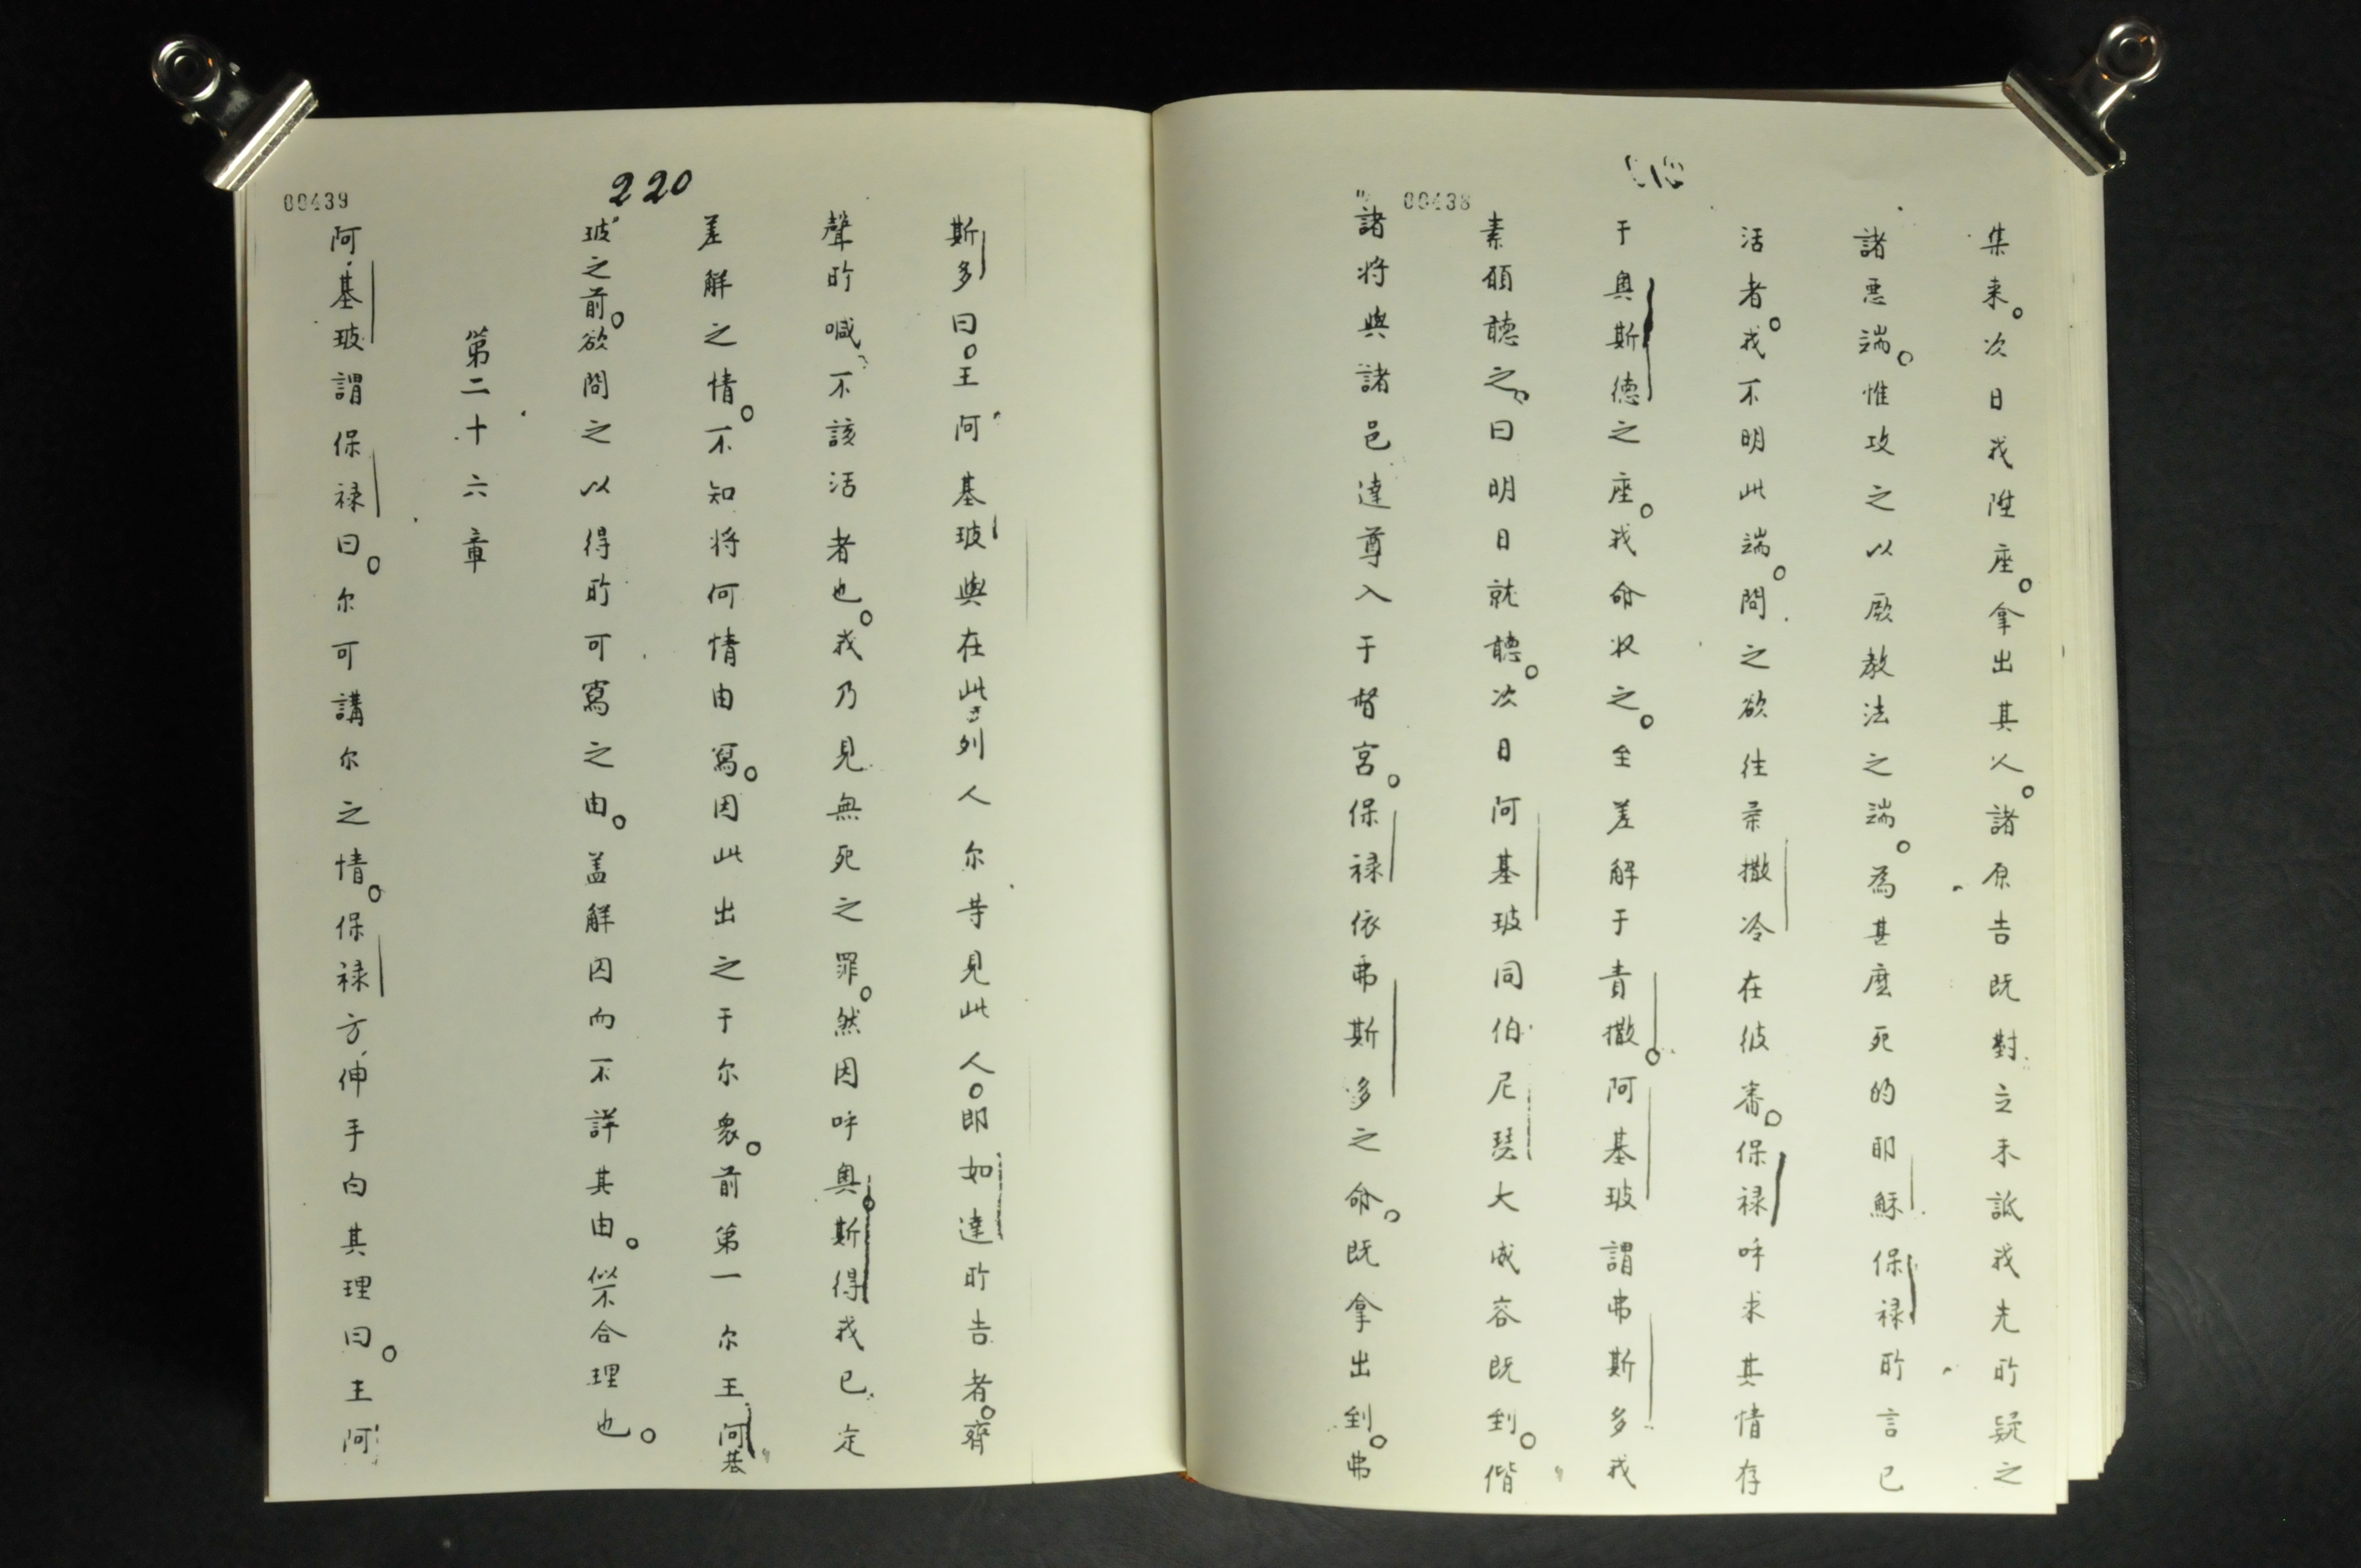 集来。次日我陞座。拿出其人。諸原告既對立未詆我先所疑之
諸悪端。惟攻之以厥教法之端。為甚麽死的耶穌保禄所言已
活者。我不明此端。問之欲徃柔撒冷在彼審。保禄呼求其情存
于奥斯德之座。我命収之。至差解于責撒。阿基玻謂弗斯多我
素願聴之。曰明日就聴。次日阿基玻同伯尼琵大威容既到。偕
諸将與諸邑達尊入于督宮。保禄依弗斯多之命。既拿出到。弗
00438
220
斯多曰。王阿基玻與在此列人尔等見此人。即如達所告者。齊
聲所喊不該活者也。我乃見無死之罪。然因呼奥斯得我已定
差解之情。不知将何情由寫。因此出之于尔衆。前第一尔王阿基
玻之前。欲問之以得所可寫之由。盖解囚而不詳其由。似不合理也。
第二十六章
阿基玻謂保禄曰。尔可講尔之情。保禄方伸手白其理曰。王阿
00439